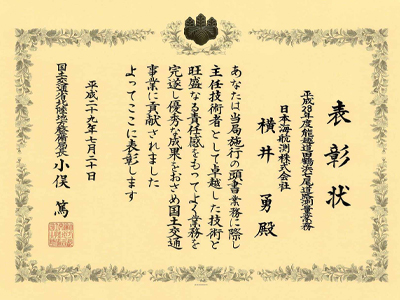 表彰状
平成28年度能越道田鶴浜七尾道路測量業務
日本海航測株式会社
横井 勇殿
あなたは当局施行の頭書業務に際し
主任技術者として卓越した技術と
旺盛なる責任感をもってよく業務を
完遂し優秀な成果をおさめ国土交通
事業に貢献されました
よってここに表彰します
平成二十九年七月二十日
国土交通省北陸地方整備局長 小俣 篤